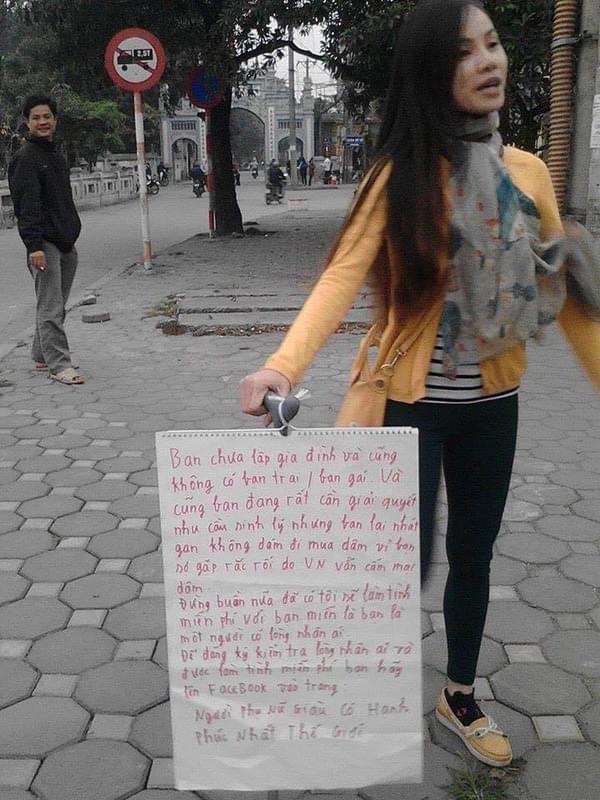 2.5T
Ban chưa lâp gia đình và cũng
không có ban trai / ban gai. Và
cũng ban đang rất cần giai quyết
nhu cầu sinh lý nhưng ban lai nhát
gan không dám đi mua dâm vì ban
sơ găp rắc rối do VN vẫn câm mai
dâm
Đừng buồn nữa đã có tôi sẽ làm tình
miễn phí với ban miễn là ban là
môt người có lòng nhân ái.
Để đăng ký kiểm tra lòng nhân ái và
được làm tình miễn phí ban hãy
lên FaceBook vào trang:
Người Phu Nữ Giàu Có Hanh
Phúc Nhất Thế Giới